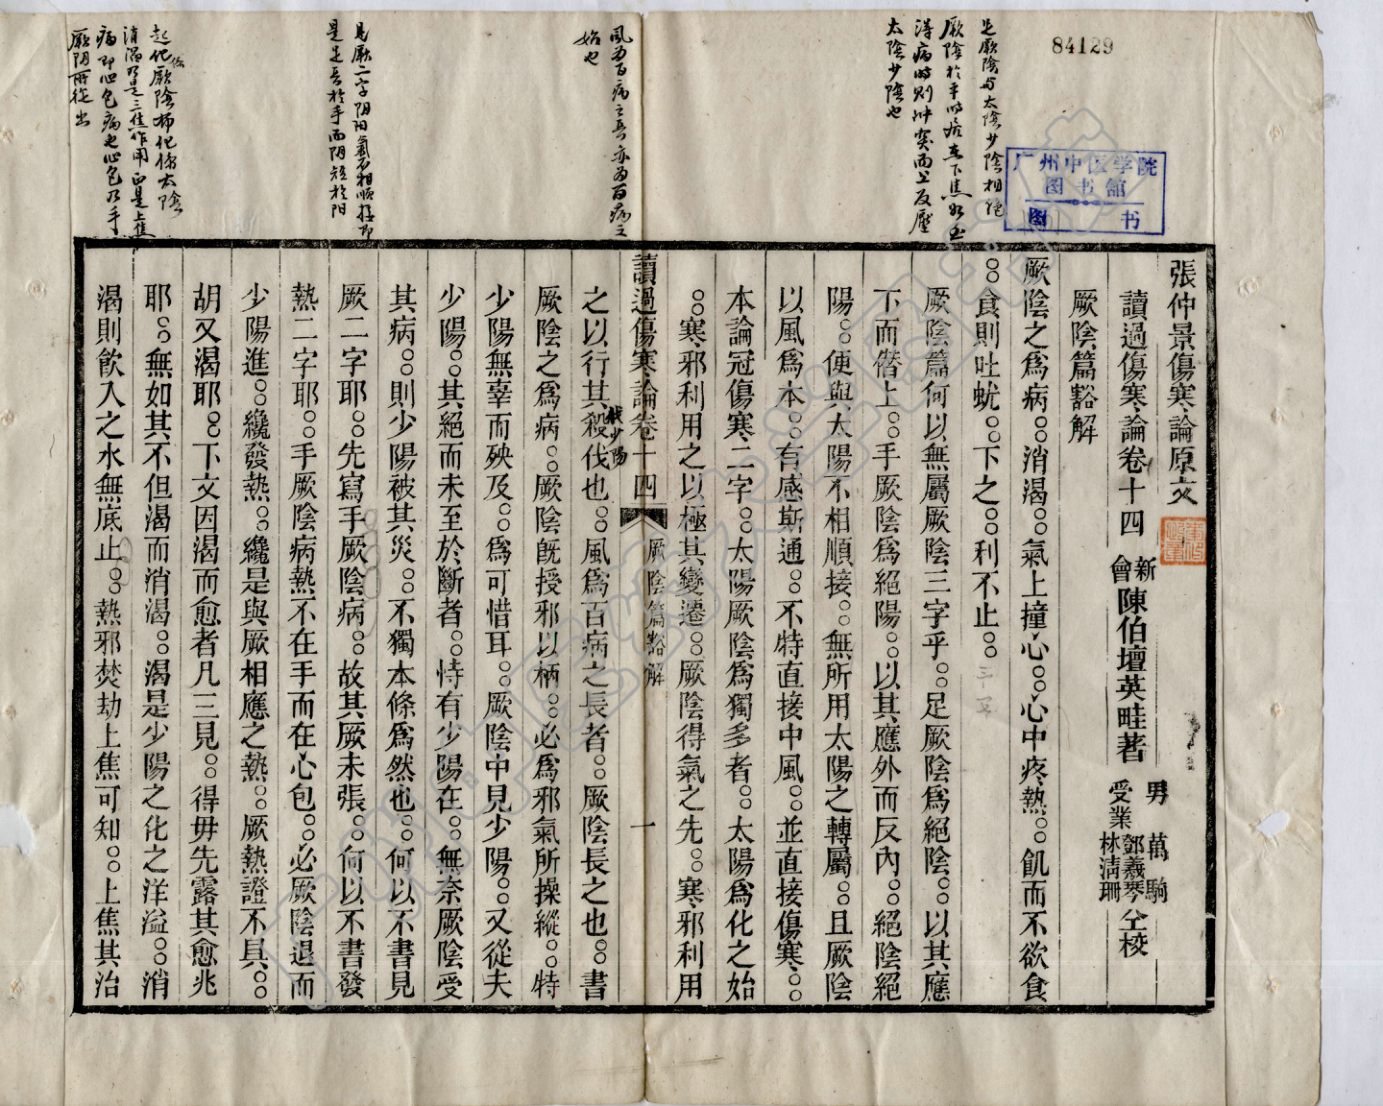 84129
广州中医学院
图书館
图 书
是厥陰與太陰少陰相絕
太陰少陰也
風為百病之長亦為百病之
始也
是足長於手而阴短於阳
厥阴所從出
張仲景傷寒論原文
讀過傷寒論卷十四 新會陳伯壇英畦著 男萬駒 受業鄧羲琴林清珊仝校
厥陰篇豁解
厥陰之為病○○消渴○○氣上撞心○○心中疼熱○○飢而不欲食
○○食則吐蚘○○下之○○利不止○○
厥陰篇何以無屬厥陰三字乎○○足厥陰為絕陰○○以其應
下而僭上○○手厥陰為絕陽○○以其應外而反內○○絕陰絕
陽○○便與太陽不相順接○○無所用太陽之轉屬○○且厥陰
以風為本○○有感斯通○○不特直接中風○○並直接傷寒○○
本論冠傷寒二字○○太陽厥陰為獨多者○○太陽為化之始
○○寒邪利用之以極其變遷○○厥陰得氣之先○○寒邪利用
讀過傷寒論卷十四 厥陰篇豁解 一
之以行其殺伐也○○風為百病之長者○○厥陰長之也○○書
厥陰之為病○○厥陰旣授邪以柄○○必為邪氣所操縱○○特
少陽無辜而殃及○○為可惜耳○○厥陰中見少陽○○又從夫
少陽○○其絕而未至於斷者○○恃有少陽在○○無奈厥陰受
其病○○則少陽被其災○○不獨本條為然也○○何以不書見
厥二字耶○○先寫手厥陰病○○故其厥未張○○何以不書發
熱二字耶○○手厥陰病熱不在手而在心包○○必厥陰退而
少陽進○○纔發熱○○纔是與厥相應之熱○○厥熱證不具○○
胡又渴耶○○下文因渴而愈者凡三見○○得毋先露其愈兆
耶○○無如其不但渴而消渴○○渴是少陽之化之洋溢○○消
渴則飲入之水無底止○○熱邪焚劫上焦可知○○上焦其治